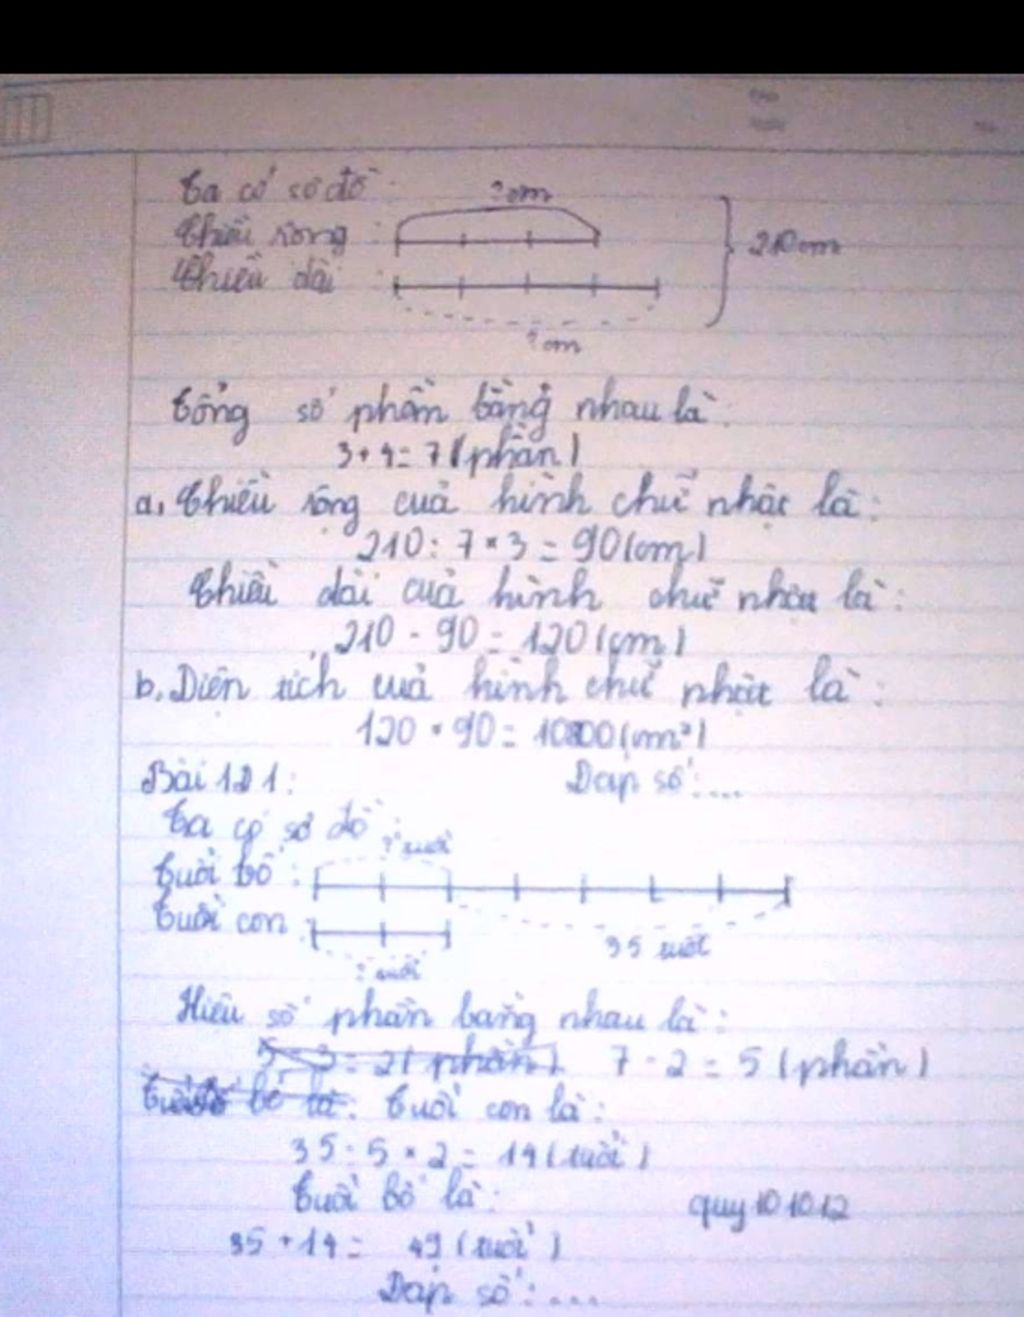 Ta có sơ đồ:
? cm
Chiều rộng :
210 cm
Chiều dài :
? cm
Tổng số phần bằng nhau là:
3 + 4 = 7 (phần)
a, Chiều rộng của hình chữ nhật là:
210 : 7 × 3 = 90 (cm)
Chiều dài của hình chữ nhật là:
210 - 90 = 120 (cm)
b, Diện tích của hình chữ nhật là:
120 × 90 = 10800 (cm²)
Bài 121: Đáp số: ...
Ta có sơ đồ :
? tuổi
Tuổi bố :
Tuổi con :
35 tuổi
? tuổi
Hiệu số phần bằng nhau là:
5 - 3 = 2 (phần) 7 - 2 = 5 (phần)
bố là: Tuổi con là:
35 : 5 × 2 = 14 (tuổi)
Tuổi bố là:
quy101012
35 + 14 = 49 (tuổi)
Đáp số: ...